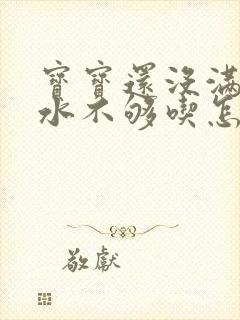 寶寶還沒滿
水不够喫怎
敬獻